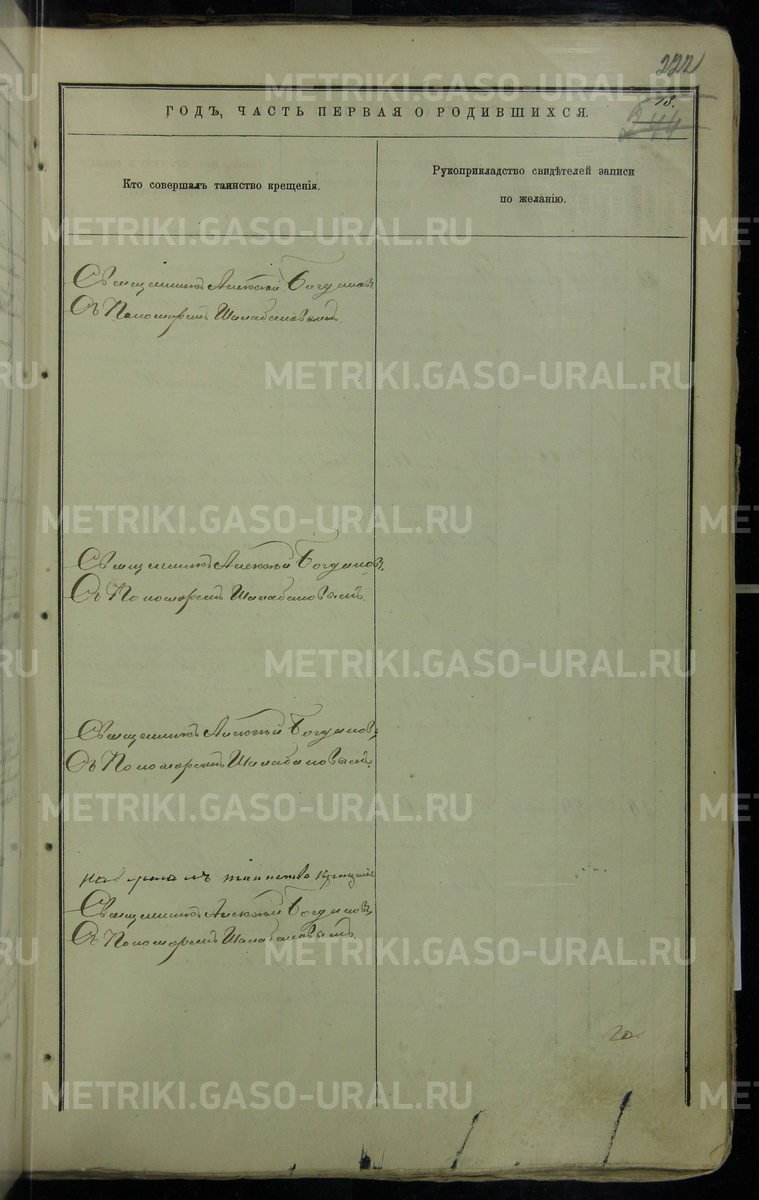 222
13.
244
ГОДЪ, ЧАСТЬ ПЕРВАЯ О РОДИВШИХСЯ.
Кто совершалъ таинство крещенія.
Рукоприкладство свидѣтелей записи
по желанію.
Священникъ Алексѣй Богдановъ
Съ Пономаремъ Шалабановымъ
Священникъ Алексѣй Богдановъ.
Съ Пономаремъ Шалабановымъ.
Священникъ Алексѣй Богдановъ
Съ Пономаремъ Шалабановымъ.
таинство крещение
Священникъ Алексѣй Богдановъ
Съ Пономаремъ Шалабановымъ.
METRIKI.GASO-URAL.RU